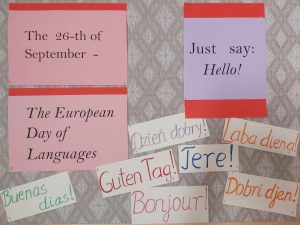 The 26-th of
September -
Just say:
Hello!
The European
Day of
Languages
Dzień dobry!
Laba diena!
Guten Tag!
Tere!
Buenas
dias!
Bonjour!
Dobri djen!